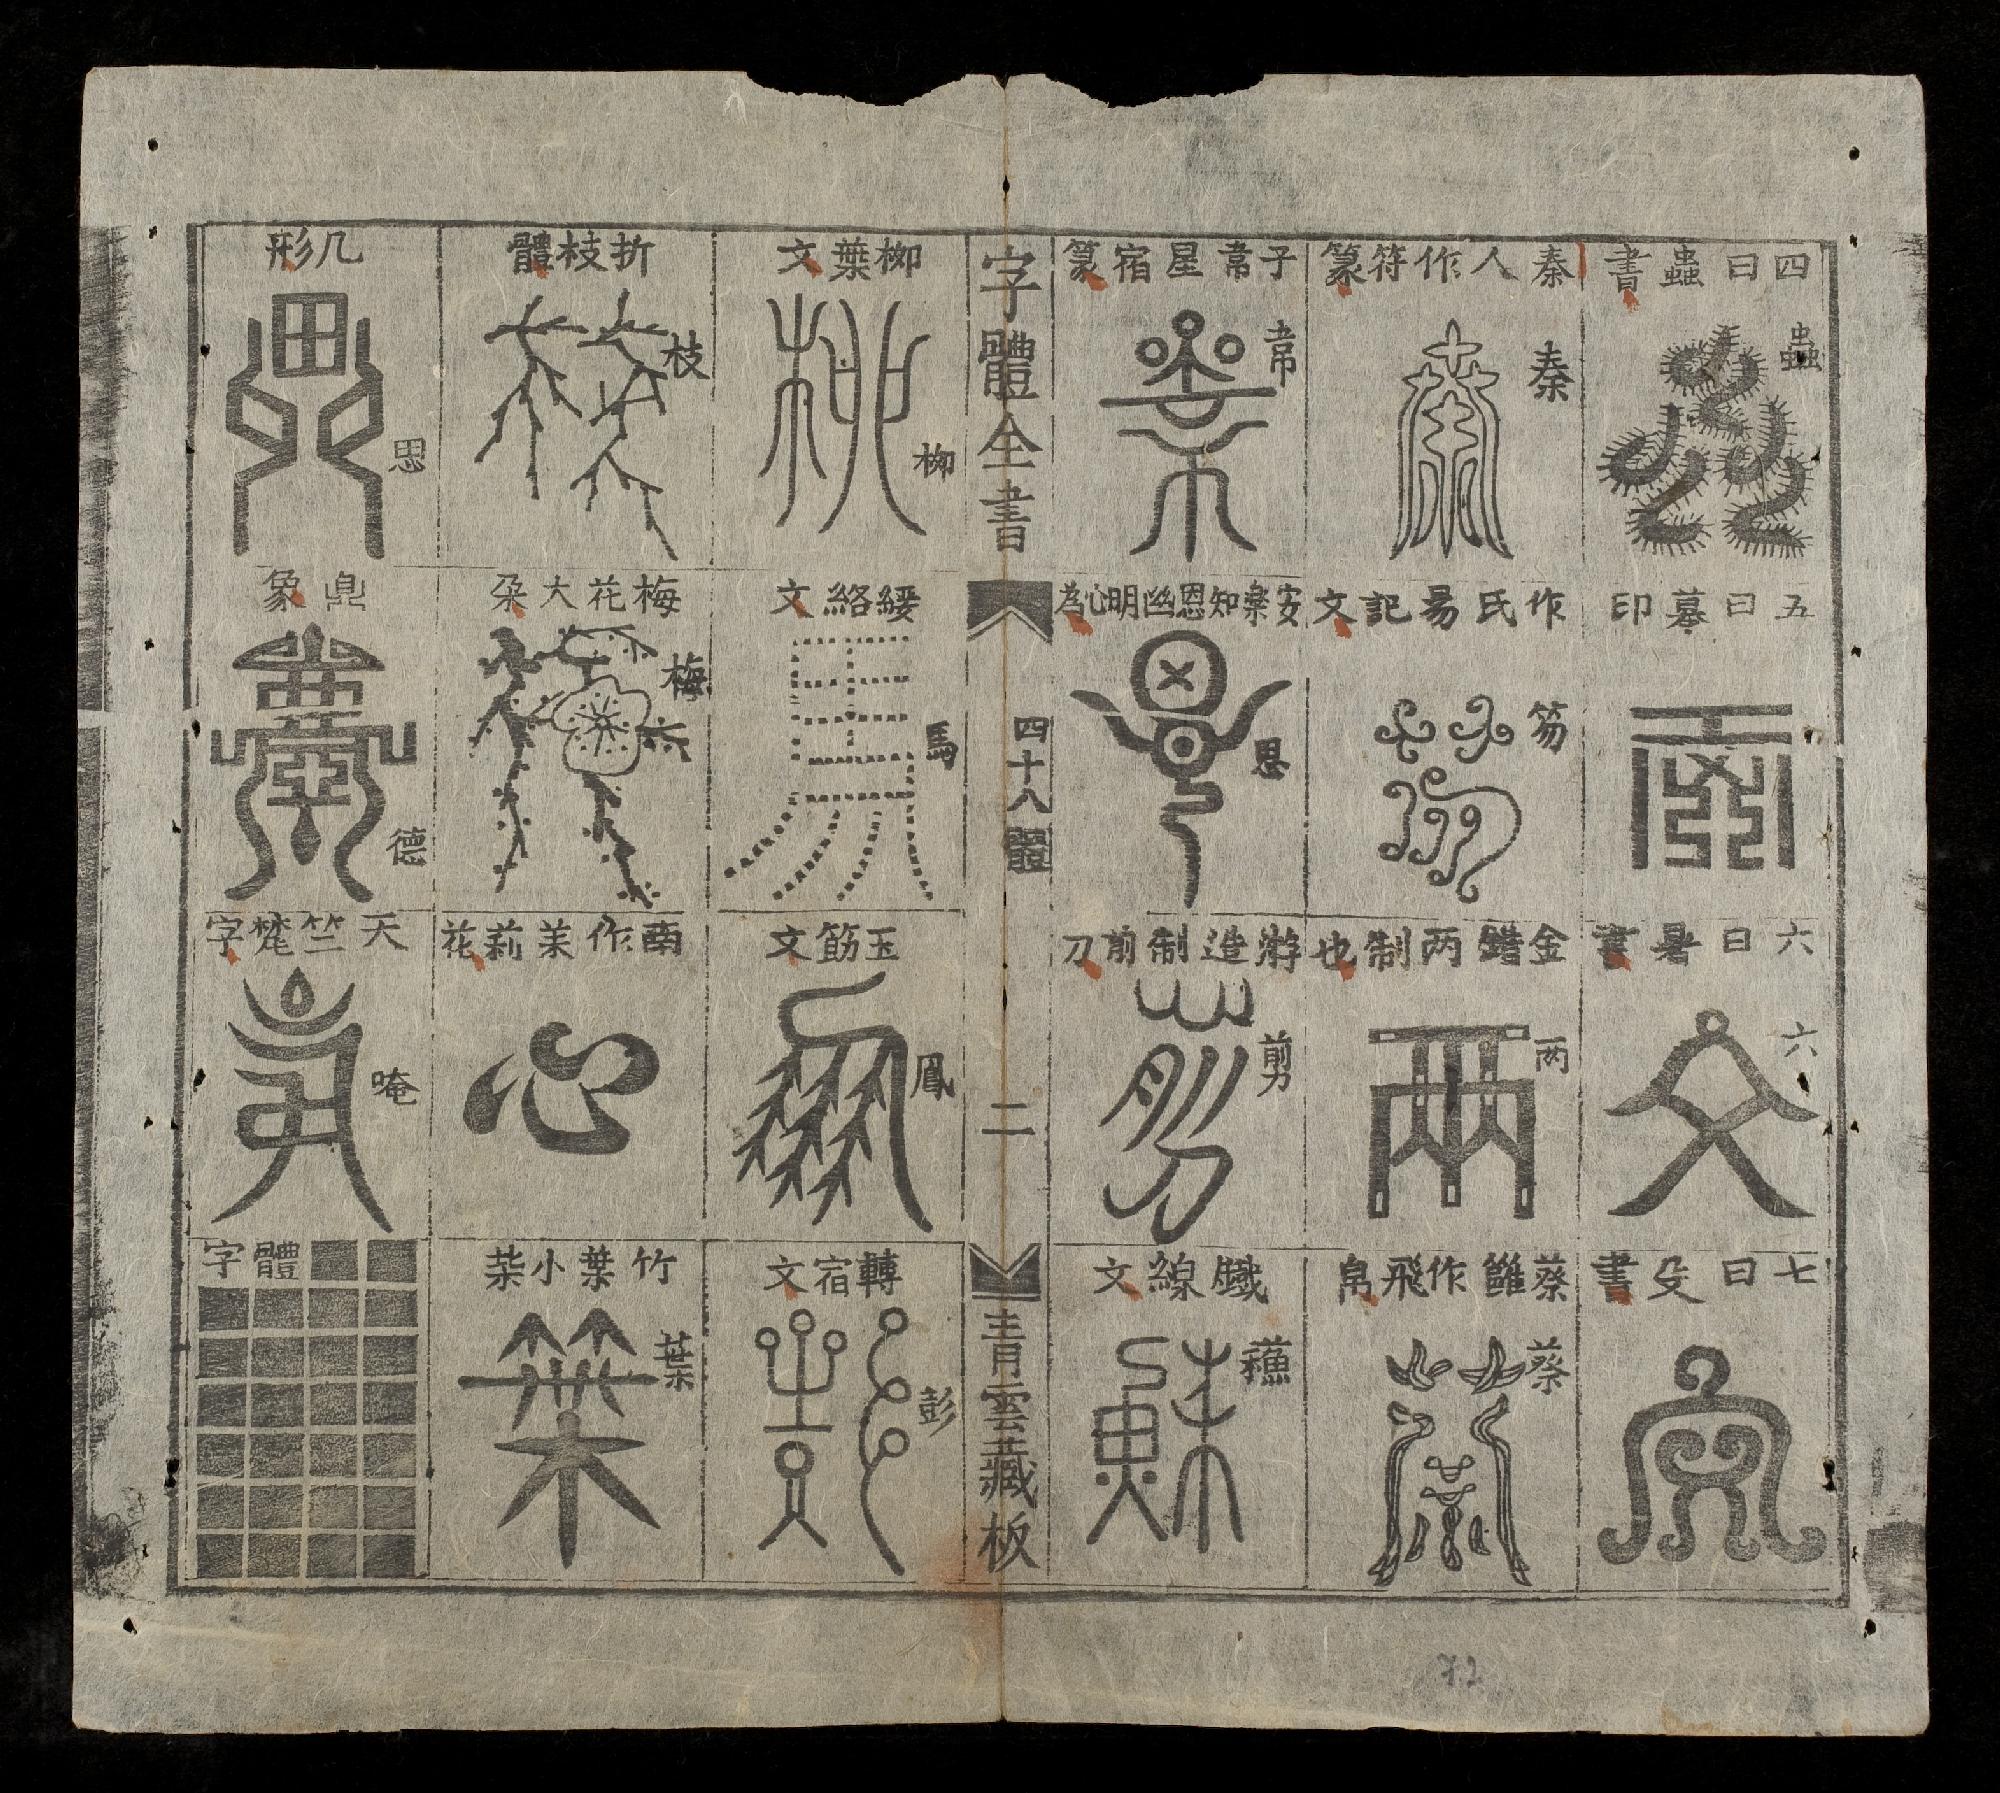 四曰蟲書
蟲
五曰墓印
六曰暑書
六
七曰殳書
秦人作符篆
秦
作氏易記文
笏
金錯两制也
两
蔡雝作飛帛
蔡
子常星宿篆
常
安樂知恩幽明心為
恩
游造制前刀
剪
鐵線文
蘓
字體全書
四十八體
二
青雲藏板
柳葉文
柳
緩絡文
馬
玉筯文
鳳
轉宿文
彭
折枝體
枝
梅花大朶
梅
南作茉莉花
心
竹葉小柴
葉
几形
思
鼎象
德
天竺梵字
唵
體字
72